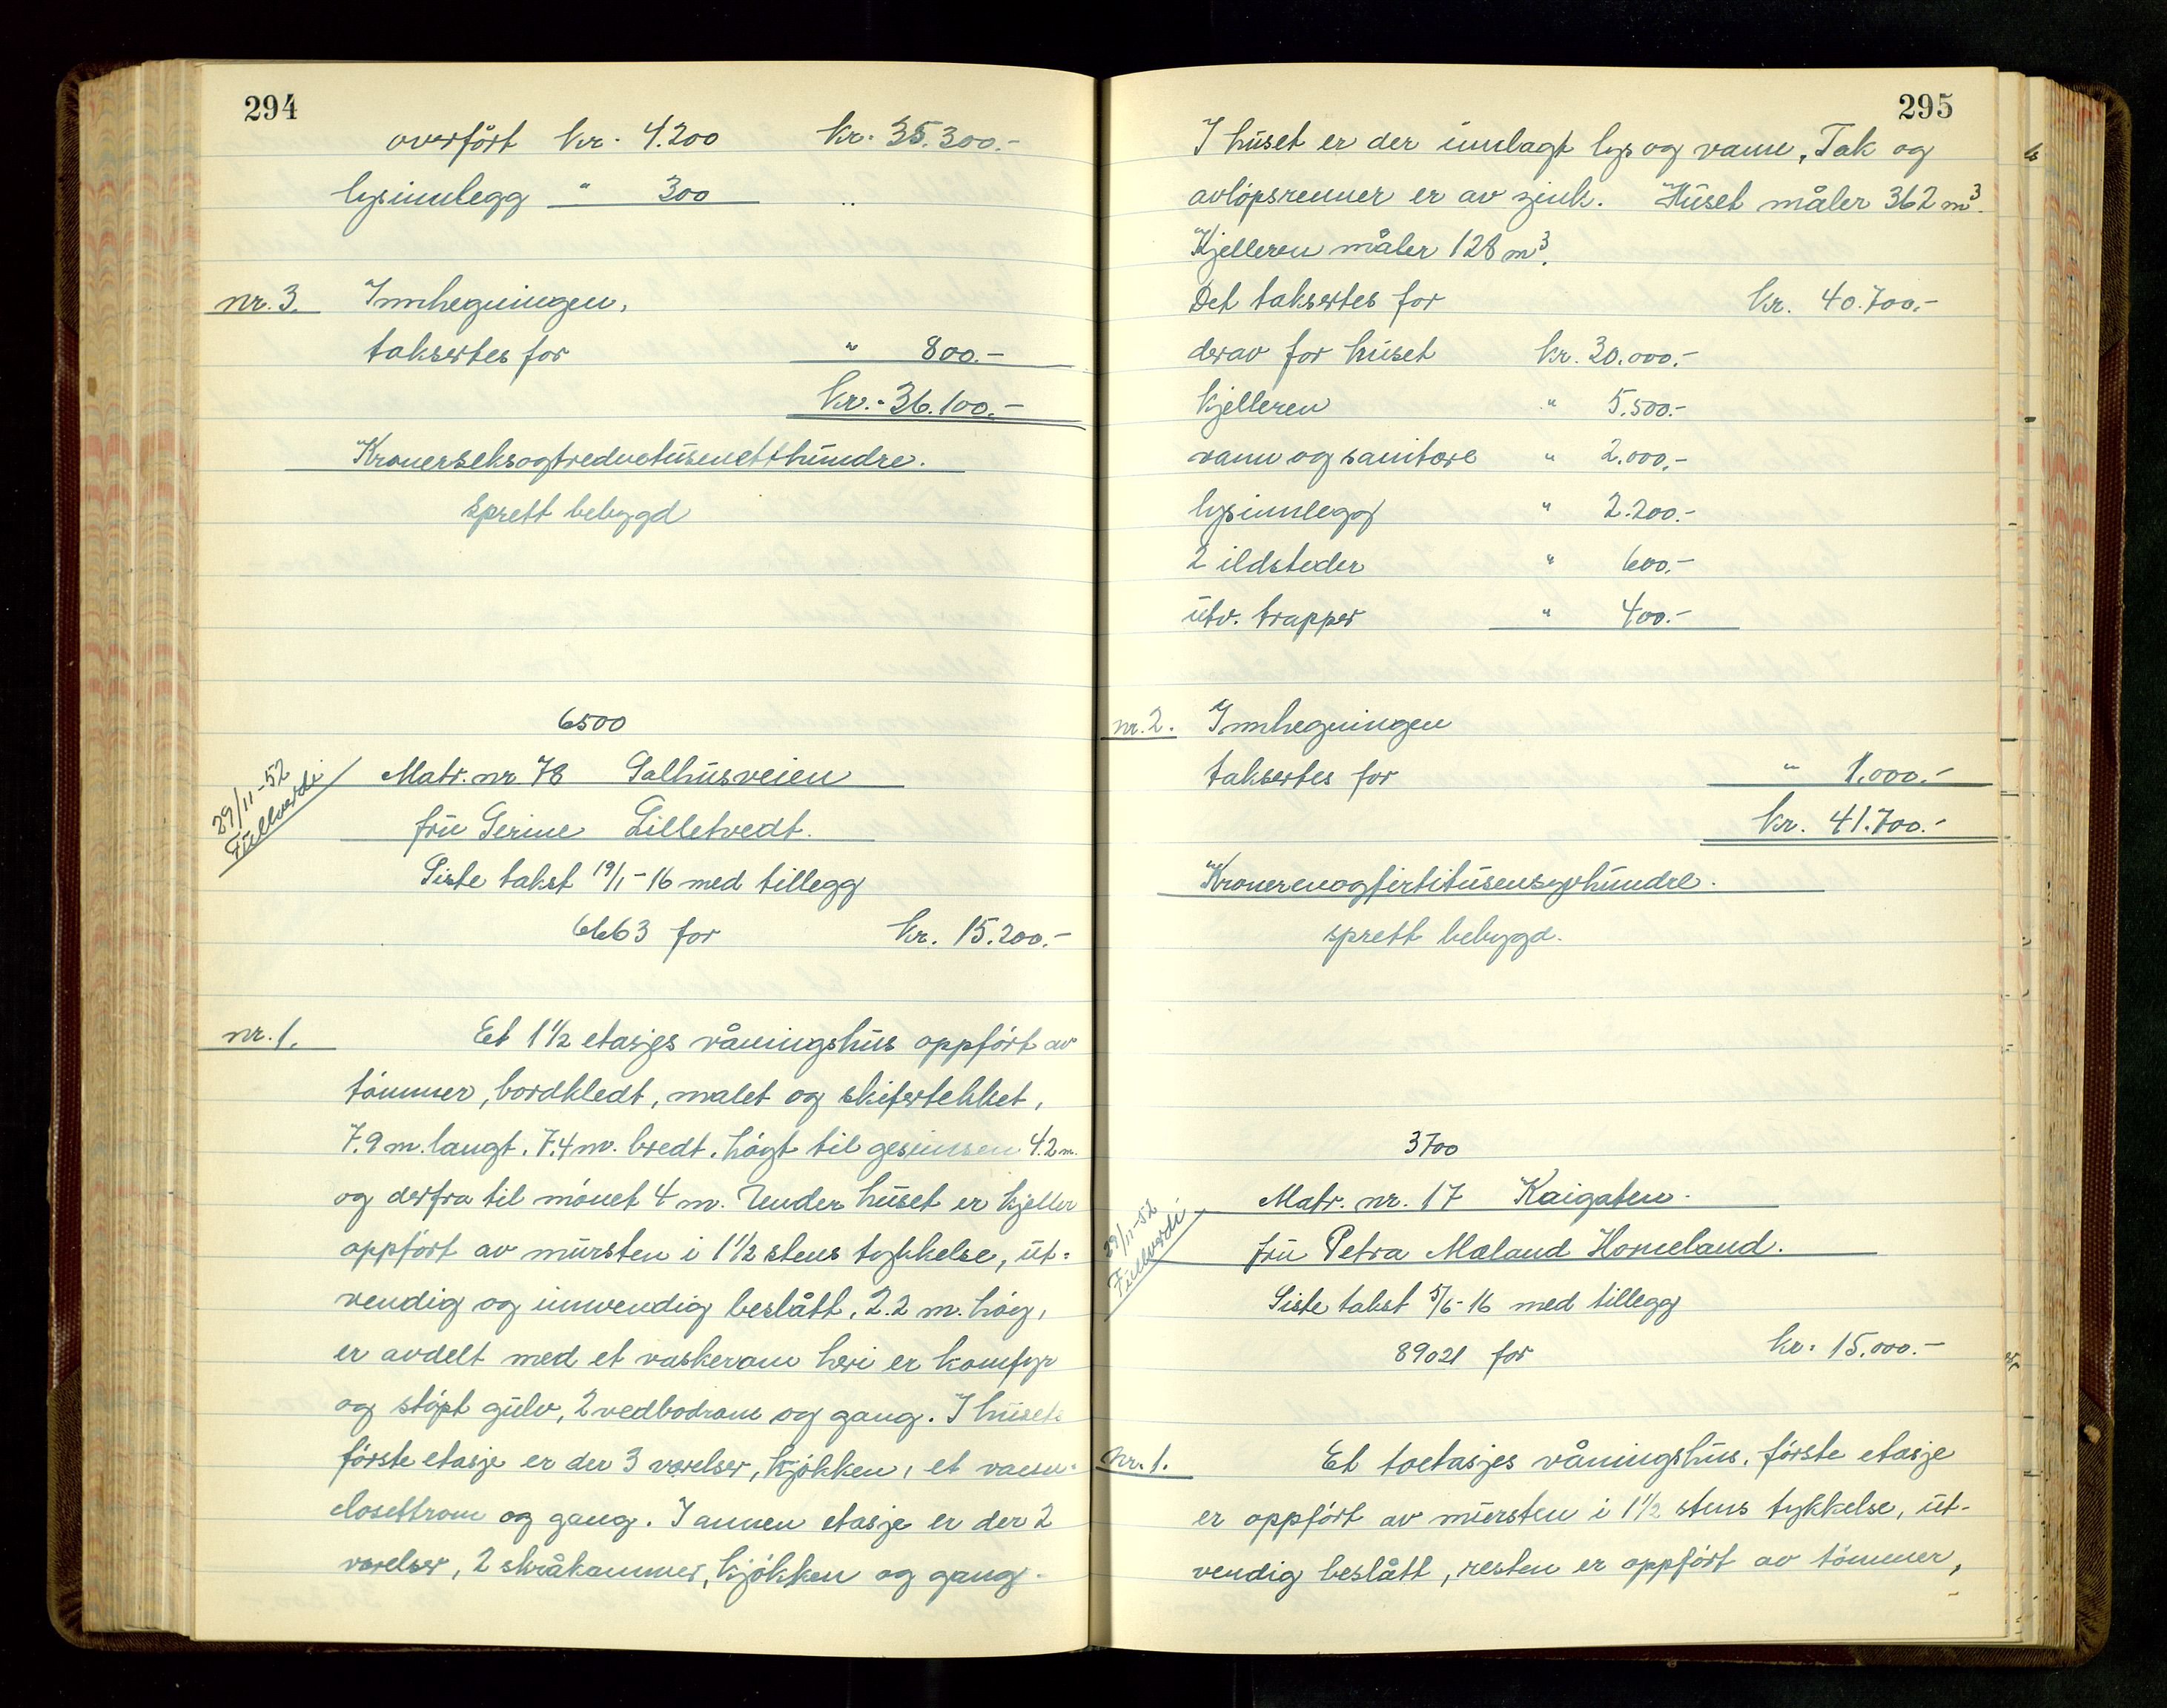 294
overfört kr. 4.200 kr. 35.300.-
lysinnlegg " 300 "
nr. 3. Innhegningen,
taksertes for " 800.-
kr. 36.100.-
Kronerseksogtredvetusenetthundre.
Sprett bebygd
6500
29/11-52
Fullverdi
Matr. nr 78 Salhusveien
fru Serine Lilletvedt.
Siste takst 19/1-16 med tillegg
6663 for kr. 15.200.-
nr. 1. Et 1 1/2 etasjes våningshus oppfört av
tömmer, bordkledt, malet og skifertekket,
7.9 m. langt. 7.4 m. bredt. högt til gesimsen 4.2 m.
og derfra til mönet 4 m. Under huset er kjeller
oppfört av mursten i 1 1/2 stens tykkelse, ut=
vendig og innvendig beslått. 2.2 m. höy,
er avdelt med et vaskerom heri er komfyr
og stöpt gulv, 2 vedbodrom og gang. I husets
förste etasje er der 3 værelser, kjökken, et vann-
closettrom og gang. I annen etasje er der 2
værelser, 2 skråkammer, kjökken og gang.
295
I huset er der innlagt lys og vann. Tak og
avlöpsrenner er av zink. Huset måler 362 m³.
Kjelleren måler 128 m³.
Det taksertes for kr. 40.700.-
derav for huset kr. 30.000.-
kjelleren " 5.500.-
vann og sanitære " 2.000.-
lysinnlegg " 2.200.-
2 ildsteder " 600.-
utv. trapper " 400.-
nr. 2. Innhegningen
taksertes for " 1.000.-
kr. 41.700.-
Kronerenogfirtitusensyvhundre.
sprett bebygd.
3700
29/11-52
Fullverdi
Matr. nr. 17 Kaigaten.
fru Petra Mæland Homeland.
Siste takst 5/6-16 med tillegg
89021 for kr. 15.000.-
nr. 1. Et toetasjes våningshus, förste etasje
er oppfört av mursten i 1 1/2 stens tykkelse, ut-
vendig beslått, resten er oppfört av tömmer,